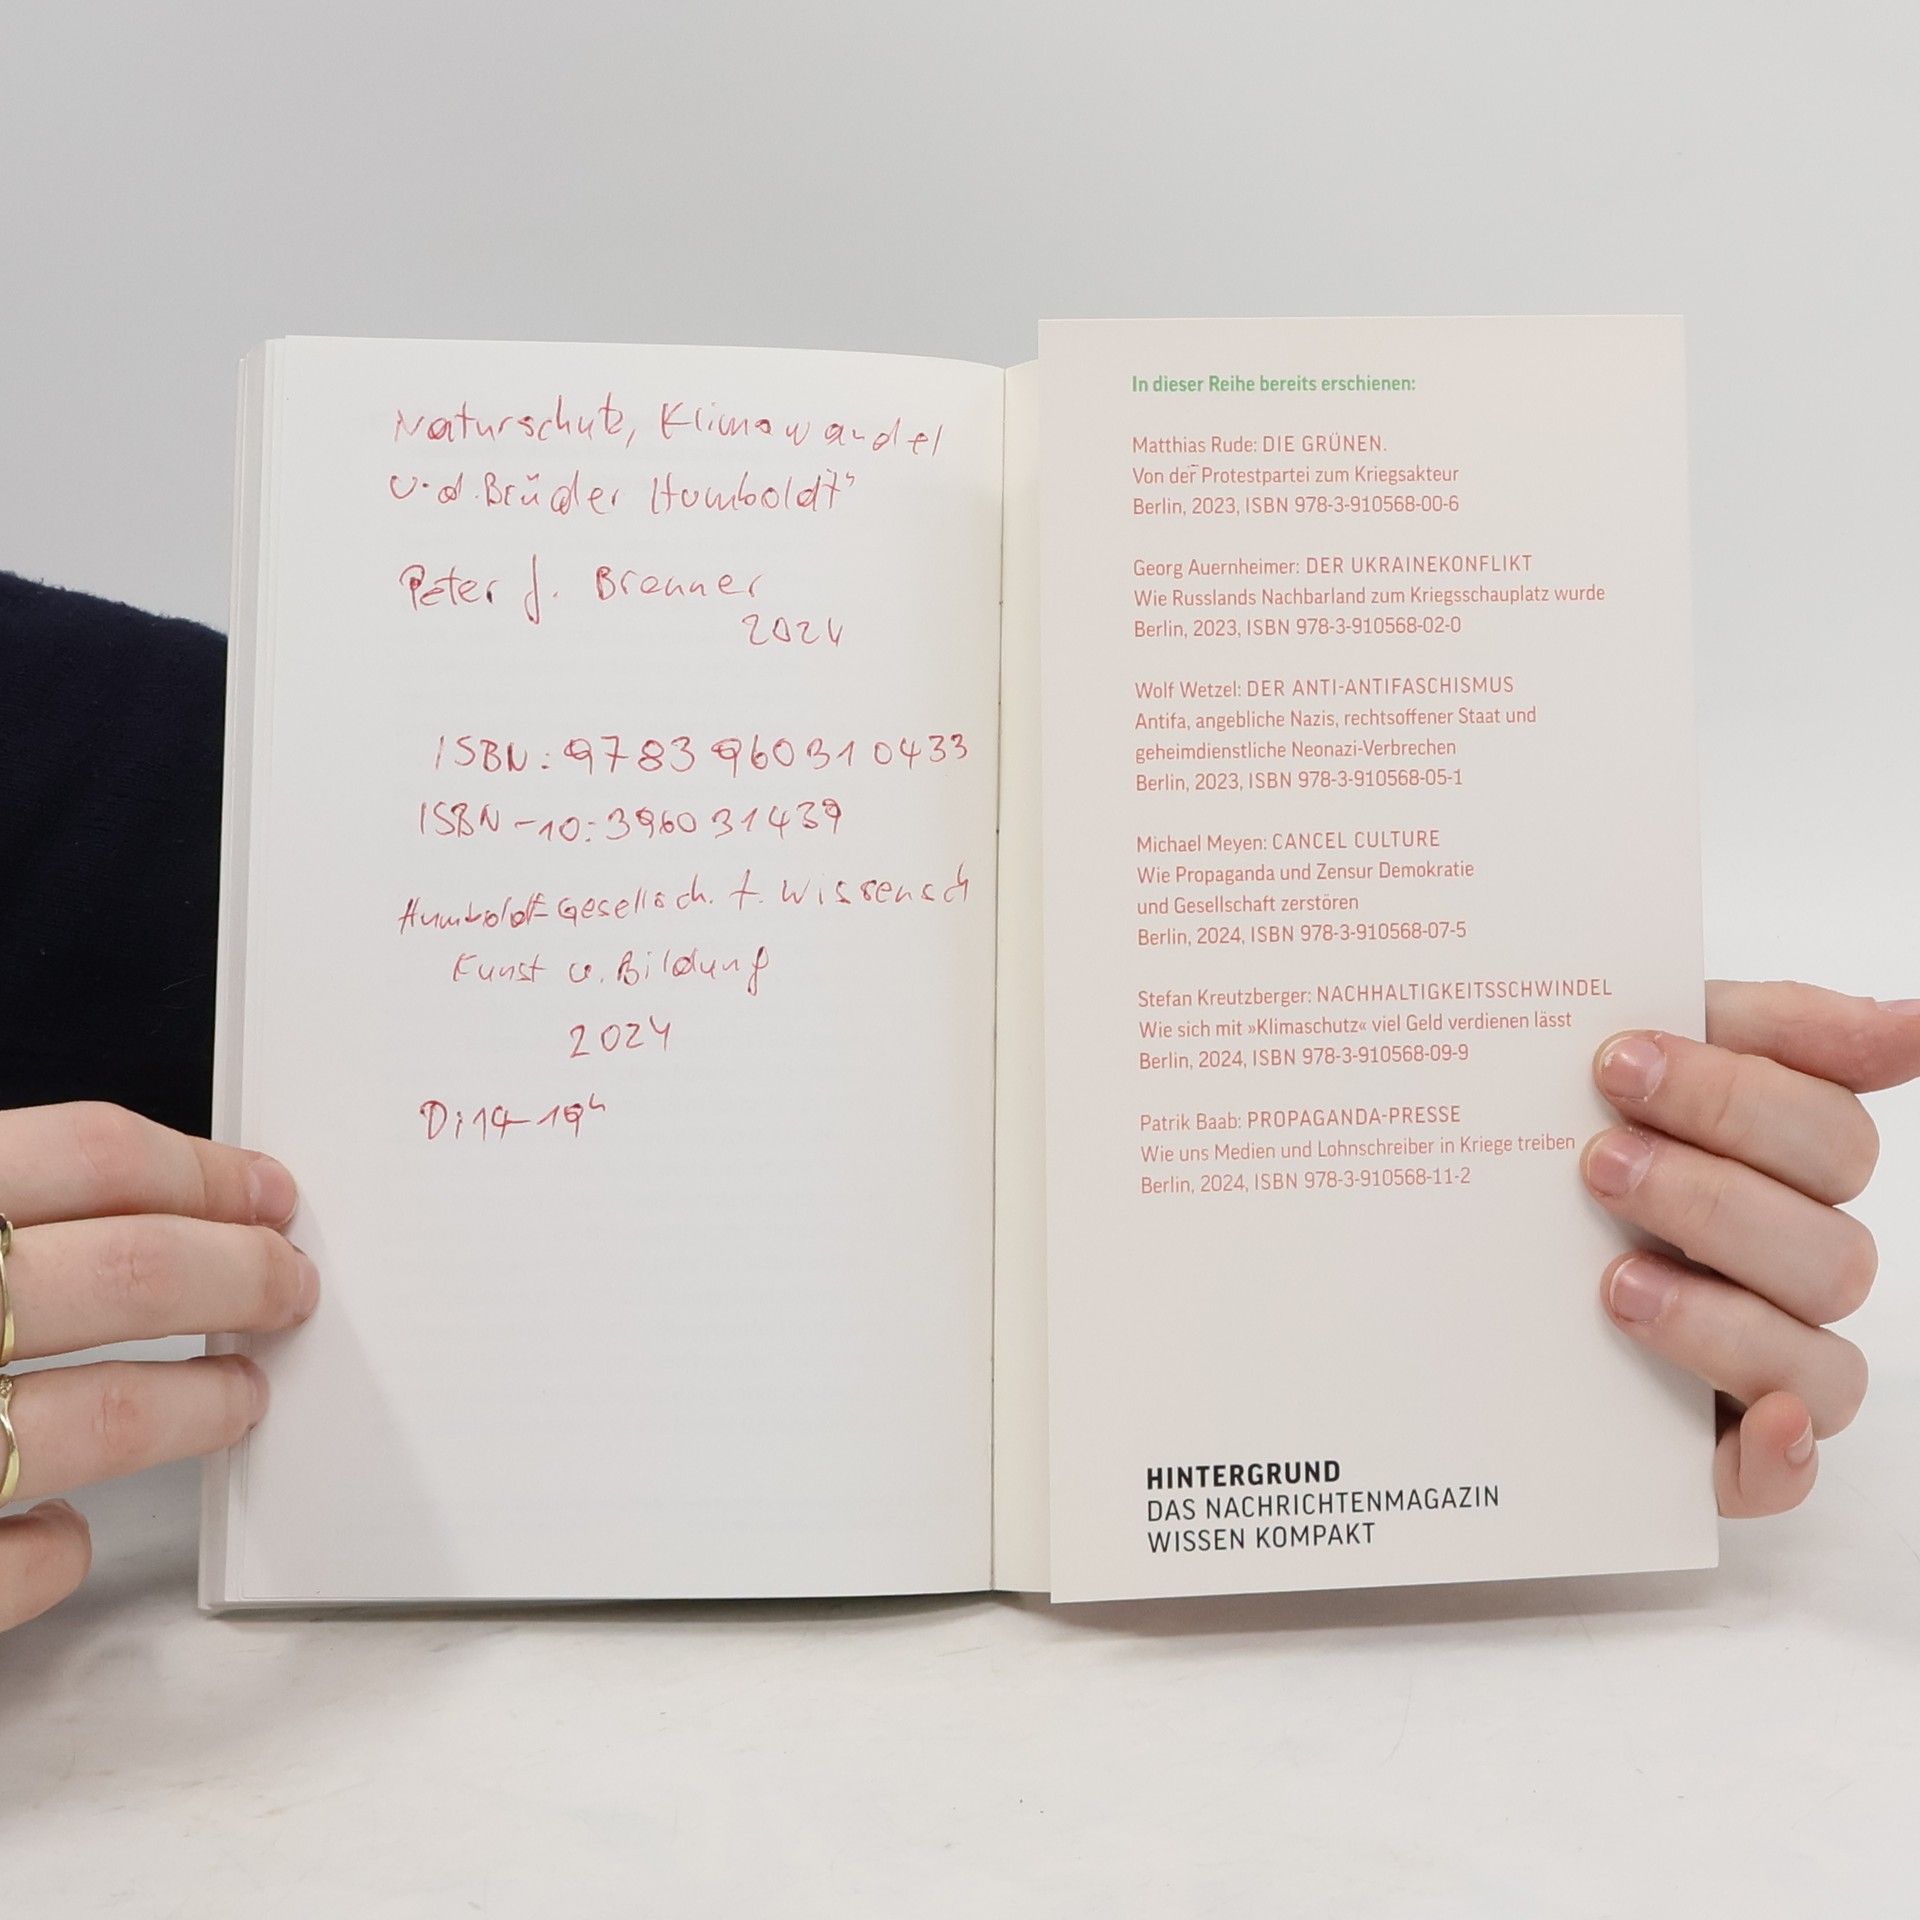 Naturschutz, Klimawandel
u. d. Brüder Humboldt"
Peter J. Brenner
2024
ISBN: 9783960310433
ISBN-10: 396031439
Humboldt-Gesellsch. f. Wissensch
Kunst u. Bildung
2024
Di 14-19h
In dieser Reihe bereits erschienen:
Matthias Rude: DIE GRÜNEN.
Von der Protestpartei zum Kriegsakteur
Berlin, 2023, ISBN 978-3-910568-00-6
Georg Auernheimer: DER UKRAINEKONFLIKT
Wie Russlands Nachbarland zum Kriegsschauplatz wurde
Berlin, 2023, ISBN 978-3-910568-02-0
Wolf Wetzel: DER ANTI-ANTIFASCHISMUS
Antifa, angebliche Nazis, rechtsoffener Staat und
geheimdienstliche Neonazi-Verbrechen
Berlin, 2023, ISBN 978-3-910568-05-1
Michael Meyen: CANCEL CULTURE
Wie Propaganda und Zensur Demokratie
und Gesellschaft zerstören
Berlin, 2024, ISBN 978-3-910568-07-5
Stefan Kreutzberger: NACHHALTIGKEITSSCHWINDEL
Wie sich mit »Klimaschutz« viel Geld verdienen lässt
Berlin, 2024, ISBN 978-3-910568-09-9
Patrik Baab: PROPAGANDA-PRESSE
Wie uns Medien und Lohnschreiber in Kriege treiben
Berlin, 2024, ISBN 978-3-910568-11-2
HINTERGRUND
DAS NACHRICHTENMAGAZIN
WISSEN KOMPAKT